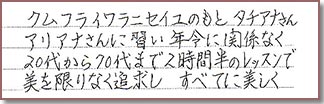 クムフライワラニセイユのもと タチアナさん
アリアナさんに習い 年令に関係なく
20代から70代まで2時間半のレッスンで
美を限りなく追求し すべてに美しく